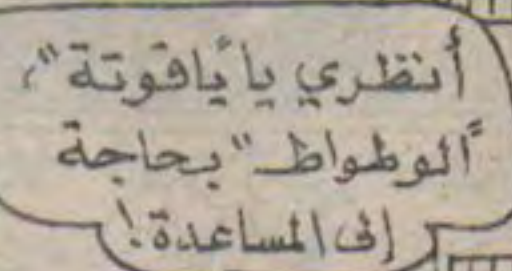 أنظري يا "ياقوتة"،
"الوطواط" بحاجة
إلى المساعدة!